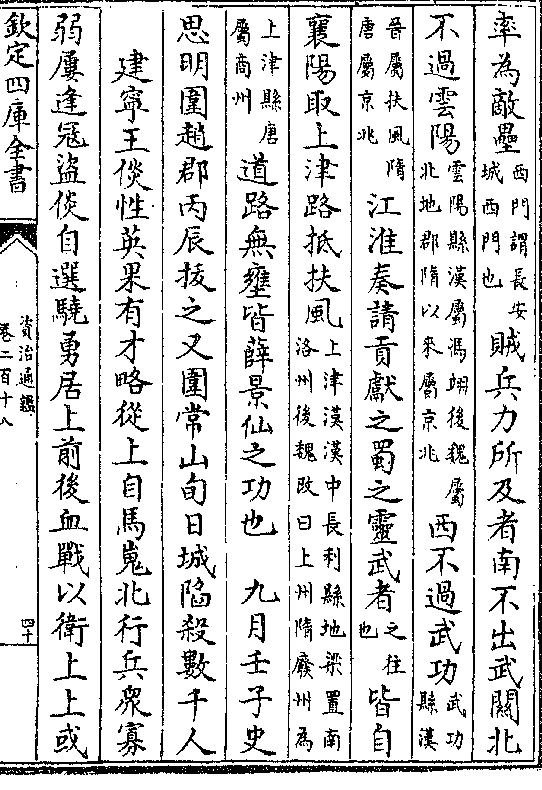 率為敵壘西門謂長安城西門也賊兵力所及者南不出武關北
不過雲陽雲陽縣漢屬馮翊後魏屬北地郡隋以來屬京兆西不過武功武功縣漢
晉屬扶風隋唐屬京兆江淮奏請貢獻之蜀之靈武者之往也皆自
襄陽取上津路抵扶風上津漢漢中長利縣地梁置南洛州後魏改曰上州隋廢州為
上津縣唐屬商州道路無壅皆薛景仙之功也 九月壬子史
思明圍趙郡丙辰拔之又圍常山旬日城陷殺數千人
建寧王倓性英果有才略從上自馬嵬北行兵衆寡
弱屢逢冦盜倓自選驍勇居上前後血戰以衛上上或
欽定四庫全書
資治通鑑
卷二百十八
四十